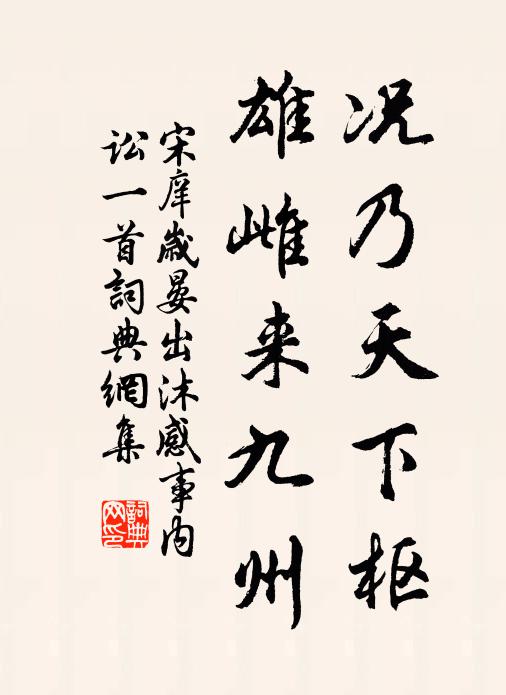 况乃天下枢
雄雌来九州
宋庠歳晏出沐感事内
讼一首詞典網集
詞典
网印